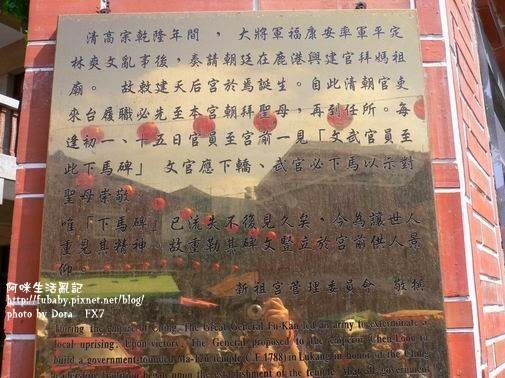 清高宗乾隆年間 ， 大將軍福康安率軍平定
林爽文亂事後，奏請朝廷在鹿港興建官拜媽祖
廟。 故敕建天后宮於焉誕生。自此清朝官吏
來台履職必先至本宮朝拜聖母，再到任所。每
逢初一、十五日官員至宮前一見「文武官員至
此下馬碑」 文官應下轎、武官必下馬以示對
聖母崇敬
唯「下馬碑」已流失不復見久矣，今為讓世人
重見其精神，故重勒其碑文豎立於宮前供人景
仰
新祖宮管理委員會 敬撰
阿咪生活亂記
http://fubaby.pixnet.net/blog/
photo by Dora FX7
During the emperor of Ching, The Great General Fu-Kan led an army to exterminate a
local uprising. Upon victory, The General proposed to the emperor Chen-Lond to
build a government-founded Ma-Tzu temple (C.E.1788) in Lukang in honor of the Ching
upon the establishment of the temple